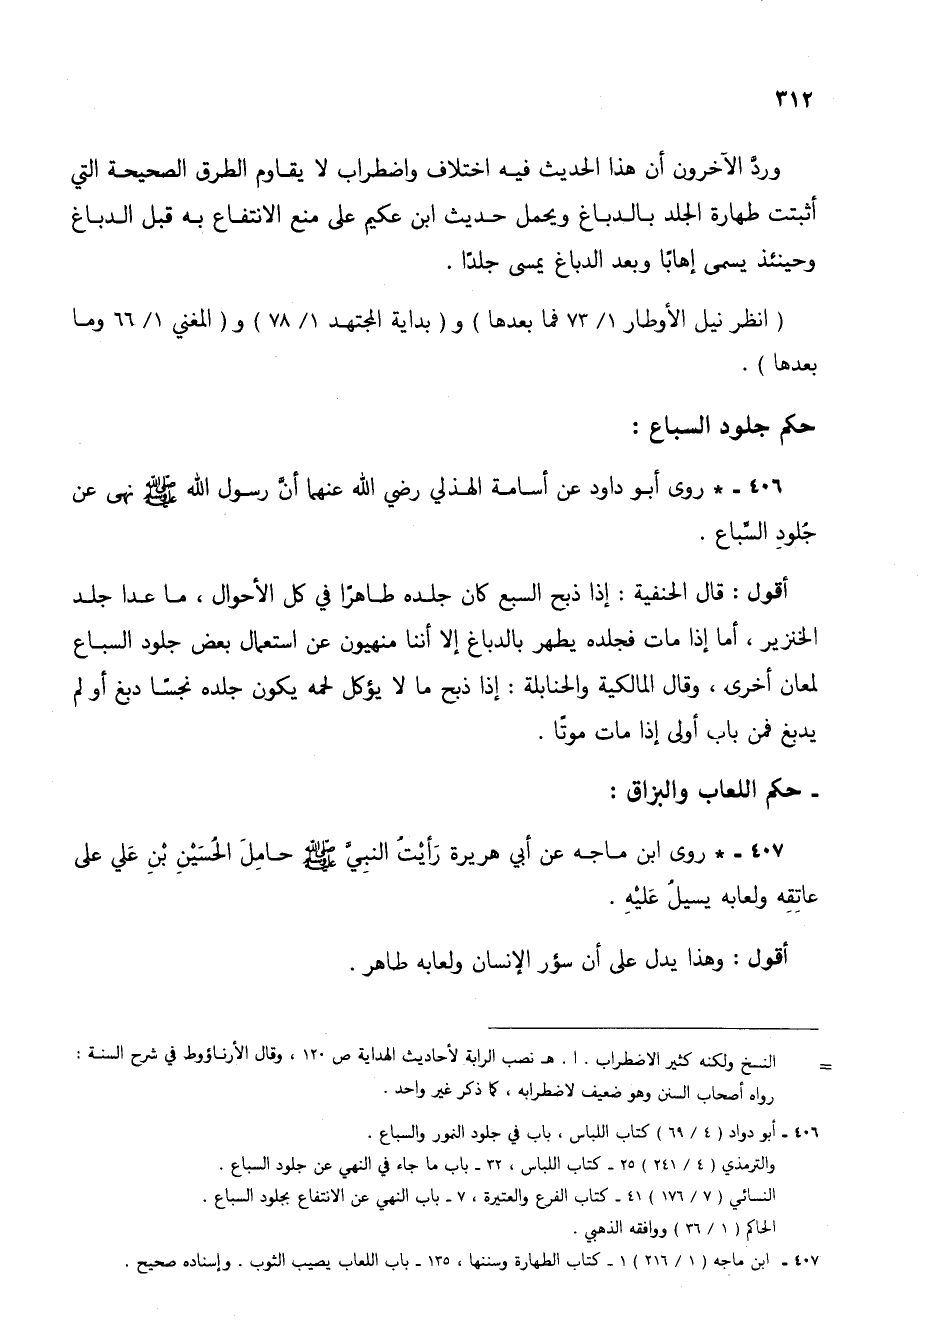 ٣١٢
وردَّ الآخرون أن هذا الحديث فيه اختلاف واضطراب لا يقاوم الطرق الصحيحة التي
أثبتت طهارة الجلد بالدباغ ويحمل حديث ابن عكيم على منع الانتفاع به قبل الدباغ
وحينئذ يسمى إهابًا وبعد الدباغ يسمى جلدًا .
( انظر نيل الأوطار ١/ ٧٣ فما بعدها ) و ( بداية المجتهد ١/ ٧٨ ) و ( المغني ١/ ٦٦ وما
بعدها ) .
حكم جلود السباع :
٤٠٦ ـ * روى أبو داود عن أسامة الهذلي رضي الله عنهما أنَّ رسول الله ﷺ نهى عن
جُلودِ السِّباع .
أقول : قال الحنفية : إذا ذبح السبع كان جلده طاهرًا في كل الأحوال ، ما عدا جلد
الخنزير ، أما إذا مات فجلده يطهر بالدباغ إلا أننا منهيون عن استعمال بعض جلود السباع
لمعان أخرى ، وقال المالكية والحنابلة : إذا ذبح ما لا يؤكل لحمه يكون جلده نجسًا دبغ أو لم
يدبغ فمن باب أولى إذا مات موتًا .
ـ حكم اللعاب والبزاق :
٤٠٧ ـ * روى ابن ماجه عن أبي هريرة رَأيْتُ النبِيَّ ﷺ حامِلَ الحُسَيْنِ بْنِ عَلي على
عاتِقِه ولعابه يسيلُ عَليْهِ .
أقول : وهذا يدل على أن سؤر الإنسان ولعابه طاهر .
= النسخ ولكنه كثير الاضطراب . ا . هـ نصب الراية لأحاديث الهداية ص ١٢٠ ، وقال الأرناؤوط في شرح السنة :
رواه أصحاب السنن وهو ضعيف لاضطرابه ، كما ذكر غير واحد .
٤٠٦ ـ أبو دواد ( ٤ / ٦٩ ) كتاب اللباس ، باب في جلود النور والسباع .
والترمذي ( ٤ / ٢٤١ ) ٢٥ ـ كتاب اللباس ، ٣٢ ـ باب ما جاء في النهي عن جلود السباع .
النسائي ( ٧ / ١٧٦ ) ٤١ ـ كتاب الفرع والعتيرة ، ٧ ـ باب النهي عن الانتفاع بجلود السباع .
الحاكم ( ١ / ٣٦ ) ووافقه الذهبي .
٤٠٧ ـ ابن ماجه ( ١ / ٢١٦ ) ١ ـ كتاب الطهارة وسننها ، ١٣٥ ـ باب اللعاب يصيب الثوب . وإسناده صحيح .